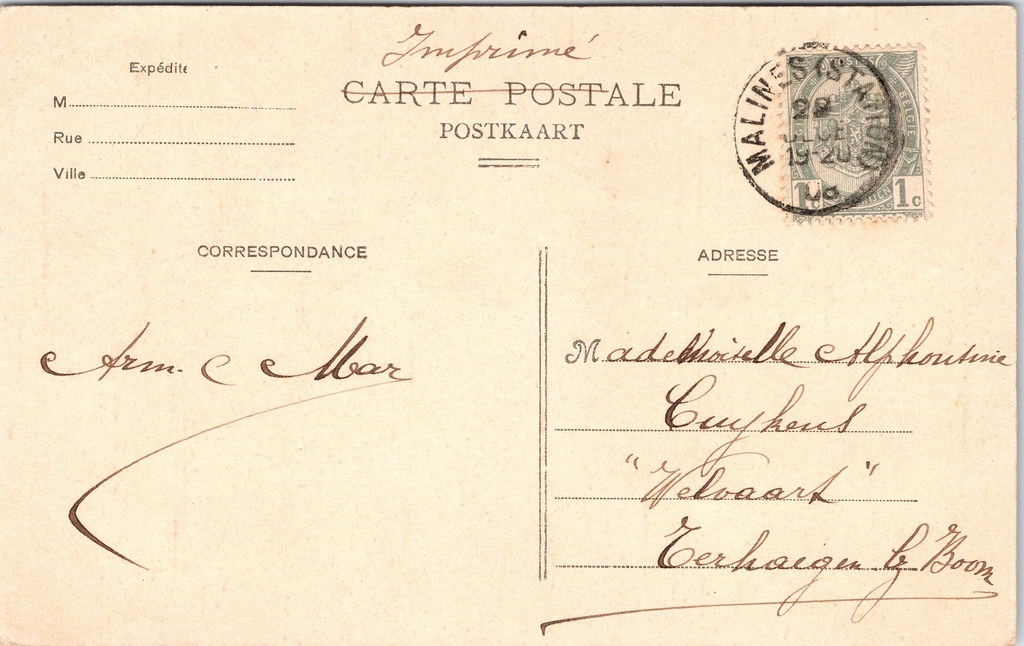 Imprimé
CARTE POSTALE
POSTKAART
Expédite
M
Rue
Ville
MALINES (STATION)
28
19-20
08
BELGIE
1c 1c
CORRESPONDANCE
ADRESSE
Arm. C Mar
Mademoiselle Alphonsine
Cuykens
"Welvaart"
Eerhaegen bz Boom